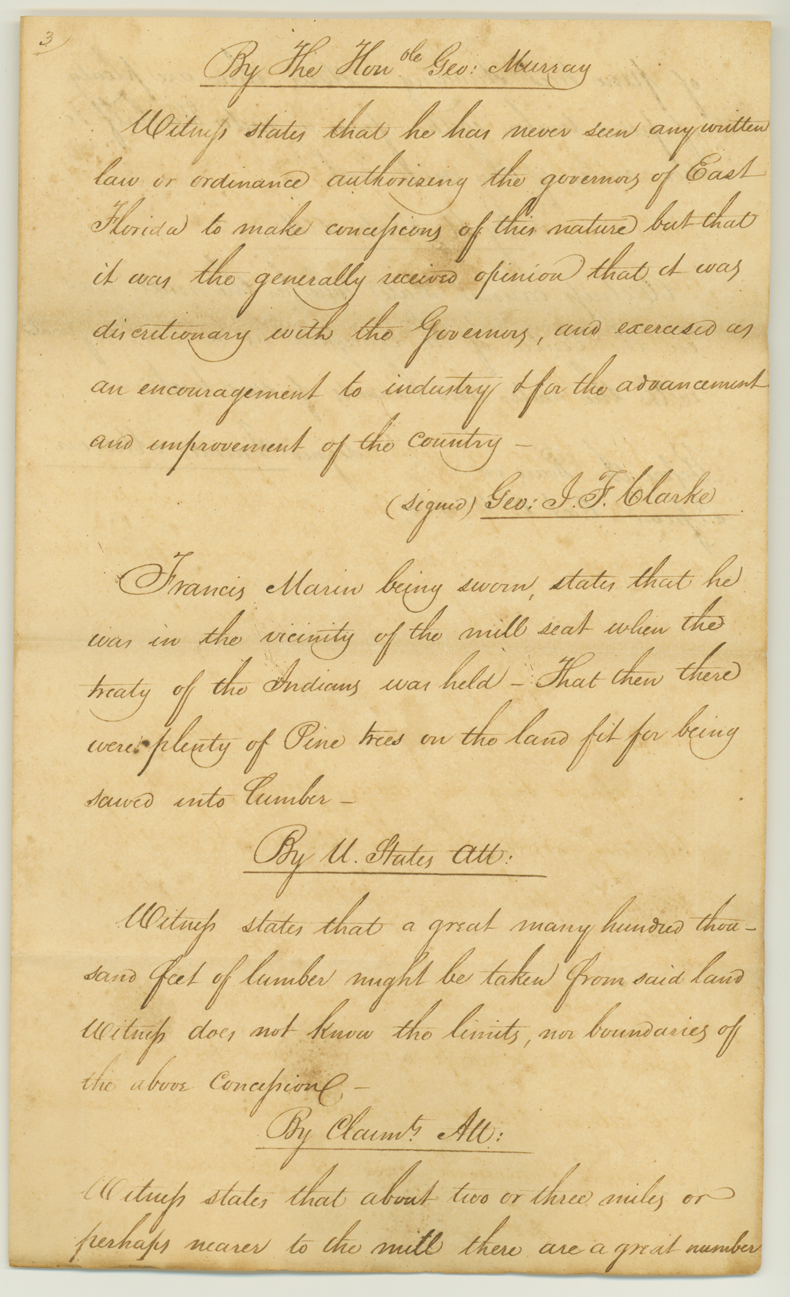 3
By The Hon^ole Geo: Murray
Witness states that he has never seen any written
law or ordinance authorizeing the governors of East
Florida to make concessions of this nature but that
it was the generally received opinion that it was
discretionary with the Governors, and exercised as
an encouragement to industry & for the advancement
and improvement of the country –
(signed) Geo: J. F. Clarke
Francis Marin being sworn, states that he
was in the vicinity of the mill seat when the
treaty of the Indians was held – That then there
were plenty of Pine trees on the land fit for being
sawed into lumber –
By U. States Att:
Witness states that a great many hundred thou-
sand feet of lumber might be taken from said land
Witness does not know the limits, nor boundaries of
the above Concession –
By Claimts Att:
Witness states that about two or three miles or
perhaps nearer to the mill there are a great number